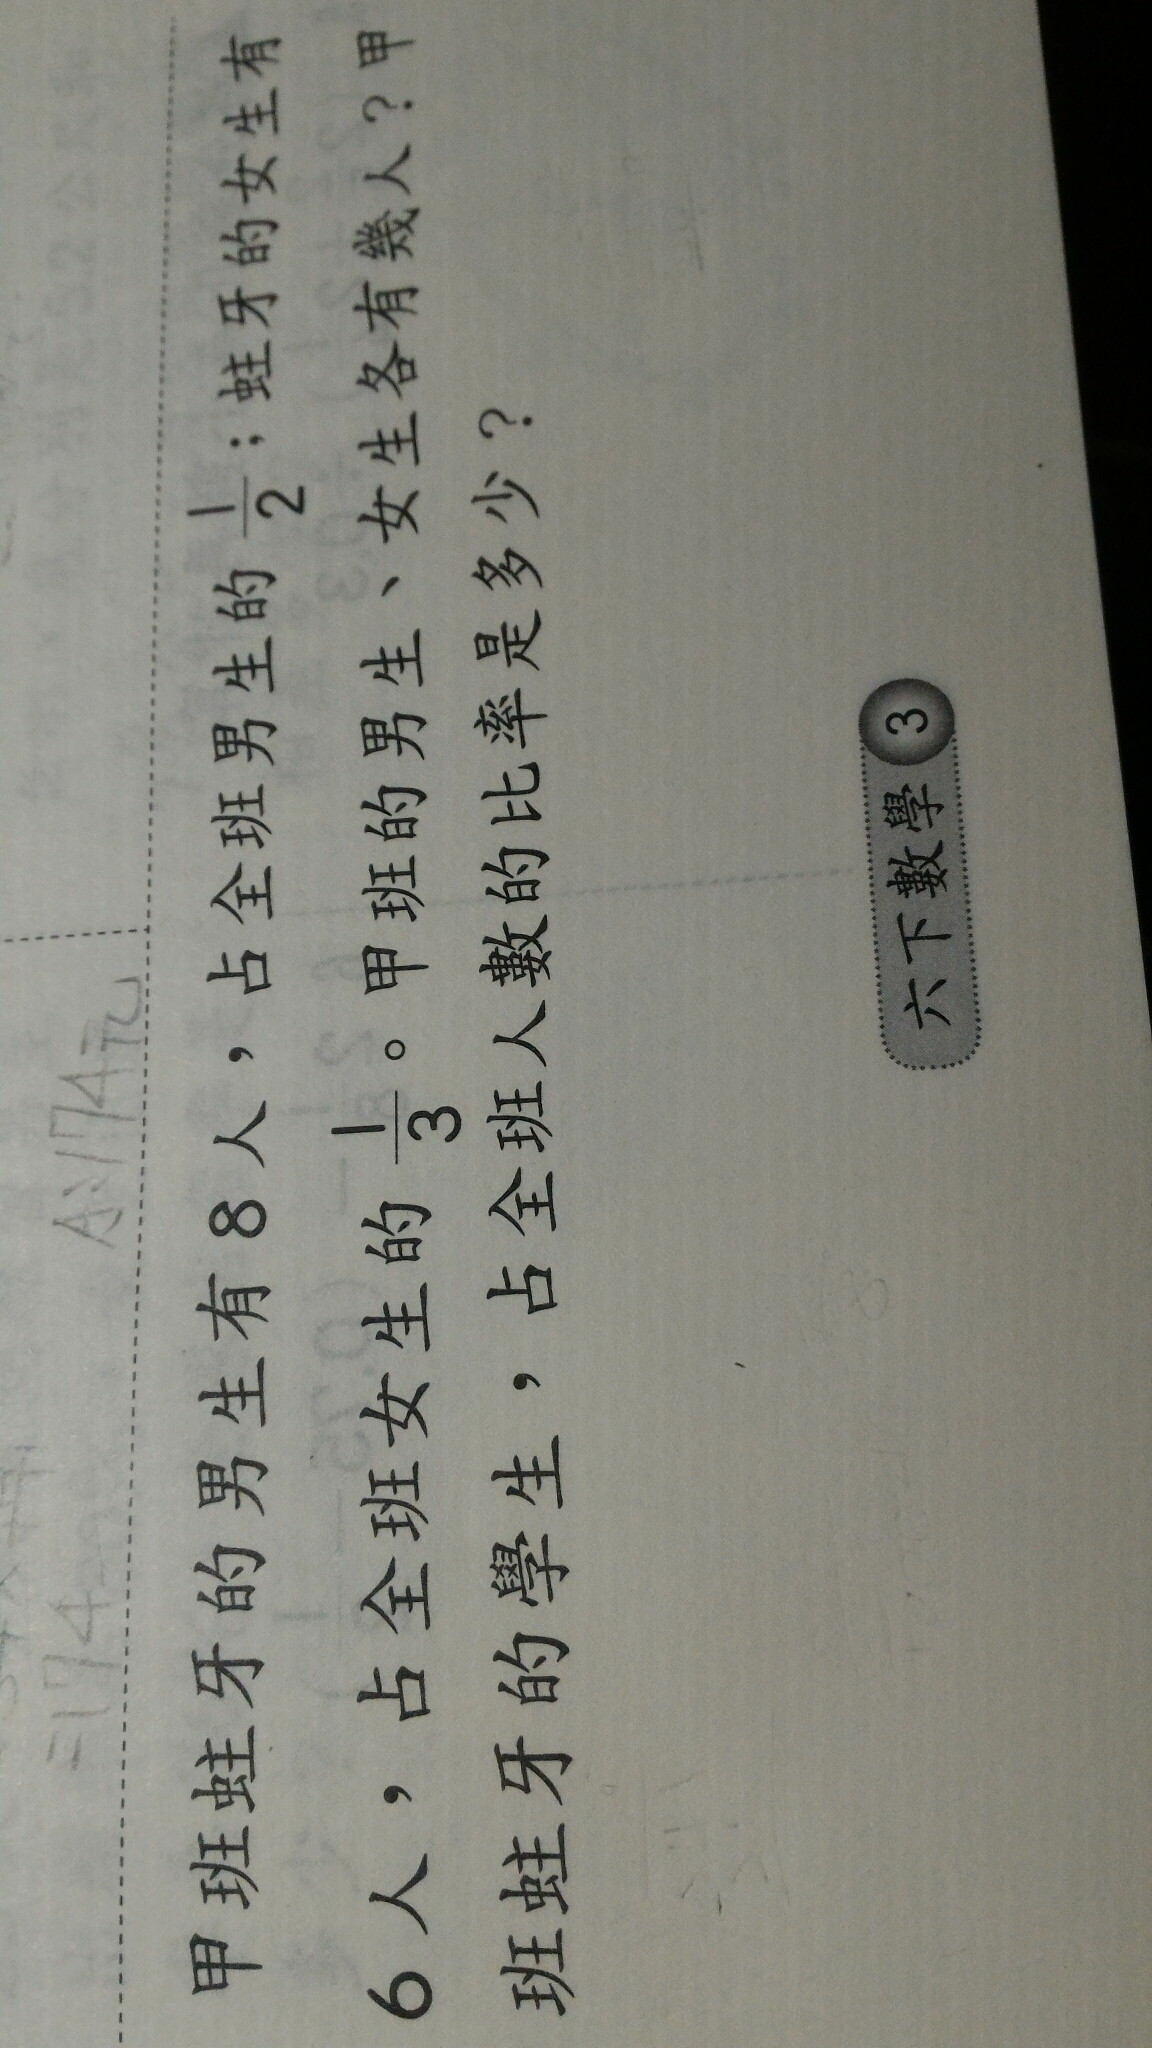 =174元
A:174元
甲班蛀牙的男生有8人，占全班男生的1/2；蛀牙的女生有
6人，占全班女生的1/3。甲班的男生、女生各有幾人？甲
班蛀牙的學生，占全班人數的比率是多少？
六下數學 3